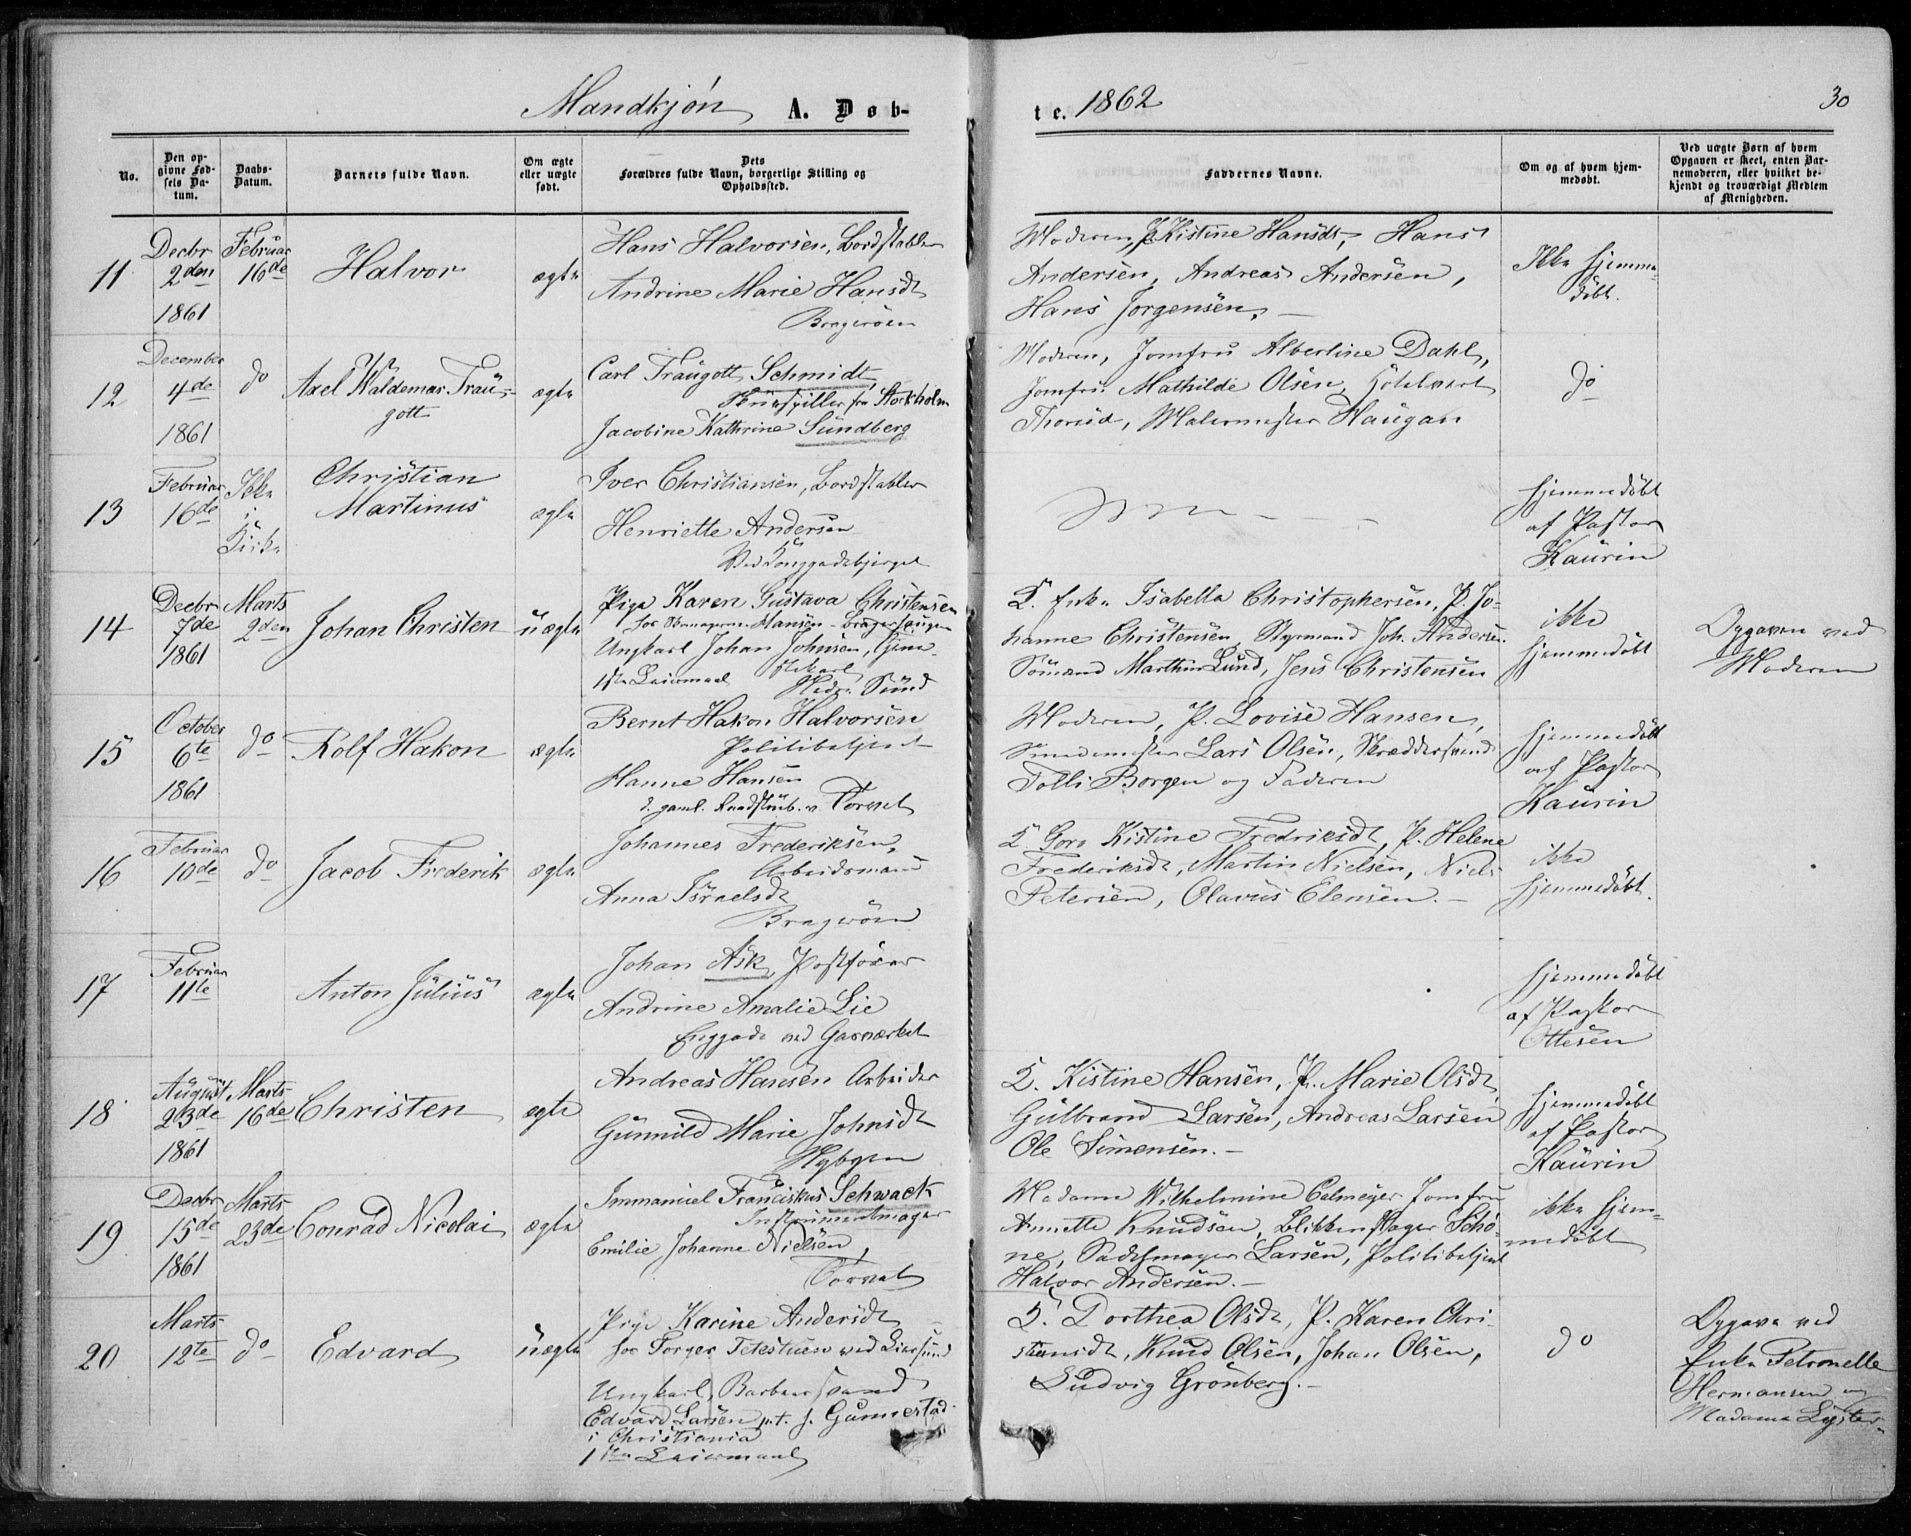 Mandkjøn A. Døb-
te. 1862
30
No.
Den op-
givne Fød-
sels Da-
tum.
Daabs-
Datum.
Barnets fulde Navn.
Om ægte
eller uægte
født.
Dets
Forældres fulde Navn, borgerlige Stilling og
Opholdssted.
Faddernes Navne.
Om og af hvem hjem-
medøbt.
Ved uægte Børn af hvem
Opgaven er skeet, enten Bar-
nemoderen, eller hvilket be-
kjendt og troværdigt Medlem
af Menigheden.
11
Decbr
2den
1861
Februar
16de
Halvor
ægte
Hans Halvorsen, Bordstabler
Andrine Marie Hansdt
Bragerøen
Moderen, P. Kistine Hansdt, Hans
Andersen, Andreas Andersen,
Hans Jørgensen. —
Ikke hjemme-
døbt.
12
December
4de
1861
do
Axel Waldemar Trau-
gott
ægte
Carl Traugott Schmidt,
fra Stockholm
Jacobine Kathrine Sundberg
Moderen, Jomfru Albertine Dahl,
Jomfru Mathilde Olsen, Hotelvert
Thorud, Malermester Haugan
do
13
Februar
16de
Ikke
i
Kirke
Christian
Martinus
ægte
Iver Christiansen, Bordstabler
Henriette Andersen
Ved
hjemmedøbt
af Pastor
Kaurin
14
Decbr
7de
1861
Marts
2den
Johan Christen
uægte
Pige Karen Gustava Christensen
hos Hansen
Ungkarl Johan Johnsen, Tjene-
stekarl
1ste Leiermaal Sund
E. Enke Isabella Christophersen, P. Jo-
hanne Christensen, Styrmand Joh. Andersen
Sømand Marthin Lund, Jens Christensen
ikke
hjemmedøbt
Opgaven ved
Moderen
15
October
6te
1861
do
Rolf Hakon
ægte
Bernt Hakon Halvorsen
Politibetjent
Hanne Hansen
d. gaml. Raadstub. v. Torvet
Moderen, P. Lovise Hansen,
Smedemester Lars Olsen, Skræddersvend
Tolli Borgen og Faderen
hjemmedøbt
af Pastor
Kaurin
16
Februar
10de
do
Jacob Frederik
ægte
Johannes Frederiksen,
Arbeidsmand
Anna Israelsdt
Bragerøen
E. Goro Kistine Fredriksdt, P. Helene
Frederiksdt, Martin Nielsen, Niels
Petersen, Olavus Elensen. —
ikke
hjemmedøbt.
17
Februar
11te
Anton Julius
ægte
Johan Ask, Postfører
Andrine Amalie Lie
Enggade ved Gasværket
hjemmedøbt
af Pastor
Ottesen
18
August
23de
1861
Marts
16de
Christen
ægte
Andreas Hansen Arbeider
Gunnild Marie Johnsdt
Nybyen
E. Kistine Hansen, P. Marie Olsdt,
Gulbrand Larsen, Andreas Larsen
Ole Simensen. —
hjemmedøbt
af Pastor
Kaurin
19
Decbr
15de
1861
Marts
23de
Conrad Nicolai
ægte
Immanuel Franciskus Schwack
Instrumentmager
Emilie Johanne Nielsen,
Torvet
Madame Wilhelmine Calmeyer, Jomfru
Annette Knudsen, Blikkenslager Schø-
ne, Sadelmager Larsen, Politibetjent
Halvor Andersen. —
ikke hjem-
medøbt
20
Marts
12te
do
Edvard
uægte
Pige Karine Andersdt
hos Torger ved Liersund
Ungkarl, Barbeersvend
Edvard Larsen p.t. h. Gunnestad
i Christiania
1ste Leiermaal
E. Dorthea Olsdt, P. Karen Chri-
stiansdt, Knud Olsen, Johan Olsen,
Ludvig Grønberg. —
do
Opgave ved
Enke Petronelle
Hermansen og
Madame Lyster.